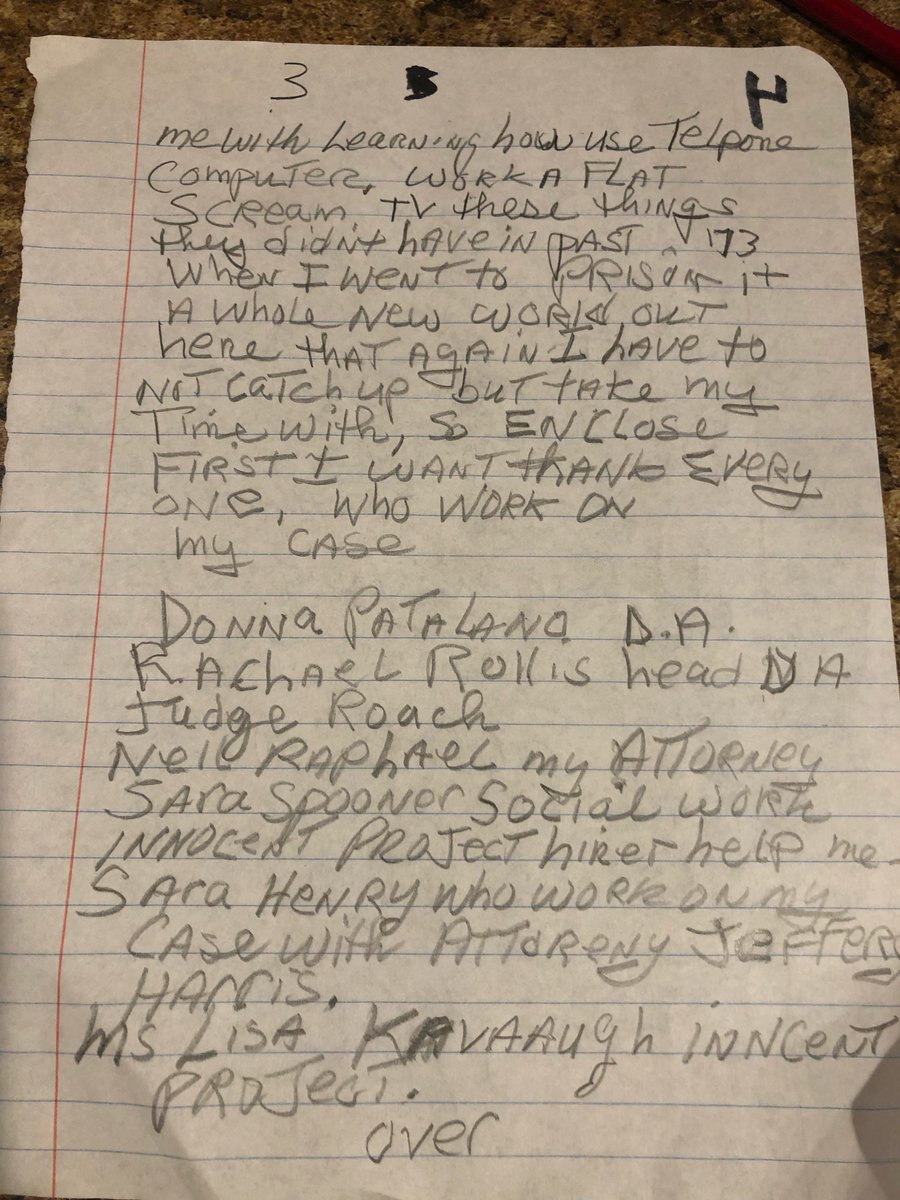 3 5 4
me with Learning how use Telpone
Computer, work a FLAT
Scream, TV these things
they didnt have in past, '73
when I went to PRISON it
A whole New world out
here that again I have to
NOT Catch up but take my
Time with, So ENCLOSE
FIRST I WANT thank Every
ONE, who WORK ON
my CASE
Donna PATALANO D.A.
RAChAEL Rollis head DA
Judge Roach
Neil RAPhAEL my ATTORNEY
SARa Spooner Social work
INNOCENT PROJECT hirer help me
SAra HENRY who work on my
CAse with ATTORENY JEFFERy
HArris.
Ms LISA KAVAAUgh INNCENT
PROJECT.
over